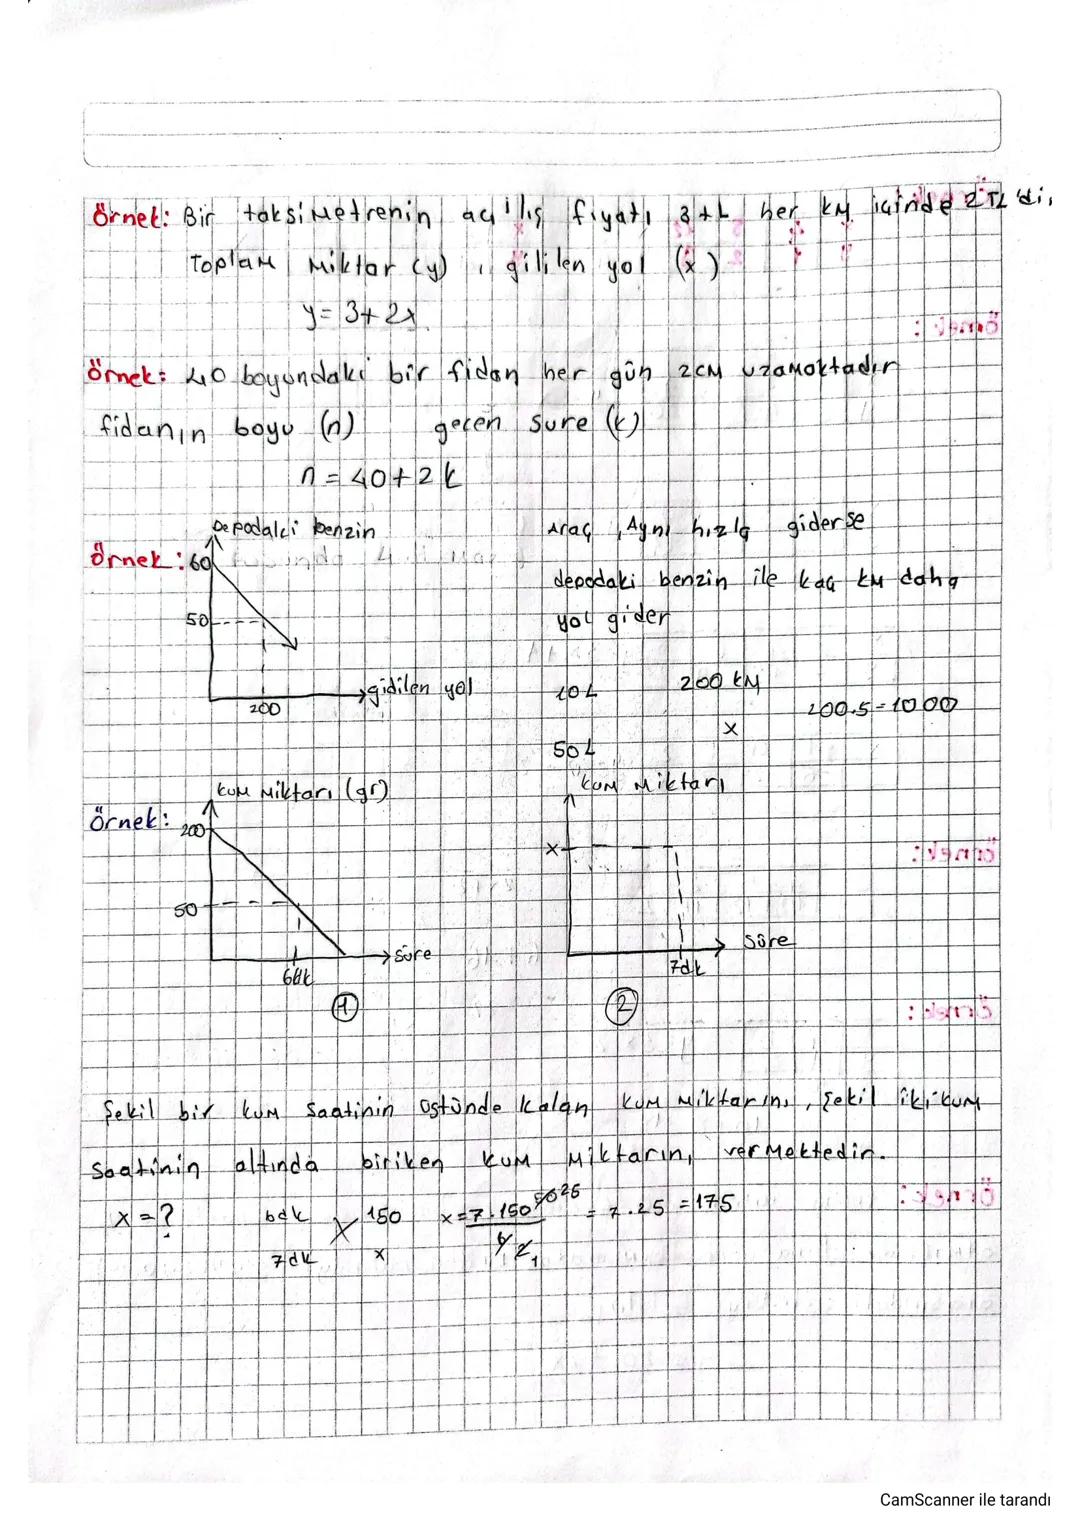 Örnek: Bir taksimetrenin açılış fiyatı 3 tL her km içinde 2 TL'di,
Toplam miktar (y) , gililen yol (x)
y = 3+2x
Örnek: 40 boyundaki bir fidan her gün 2cm uzamaktadır
fidanın boyu (n) geçen süre (k)
n = 40+2k
Örnek:
Depodaki benzin
60
50
200
gidilen yol
Araç , Aynı hızla giderse
depodaki benzin ile kaç km daha
yol gider
10L 200 km
50L x
200.5=1000
Örnek:
kum miktarı (gr)
200
50
6dk
süre
1
kum miktarı
x
7dk
süre
2
Şekil bir kum saatinin üstünde kalan kum miktarını, Şekil iki kum
saatinin altında biriken kum miktarını vermektedir.
x=? 6dk 150 x=7.150 50 25 = 7.25 = 175
7dk x 6 2 1
CamScanner ile tarandı